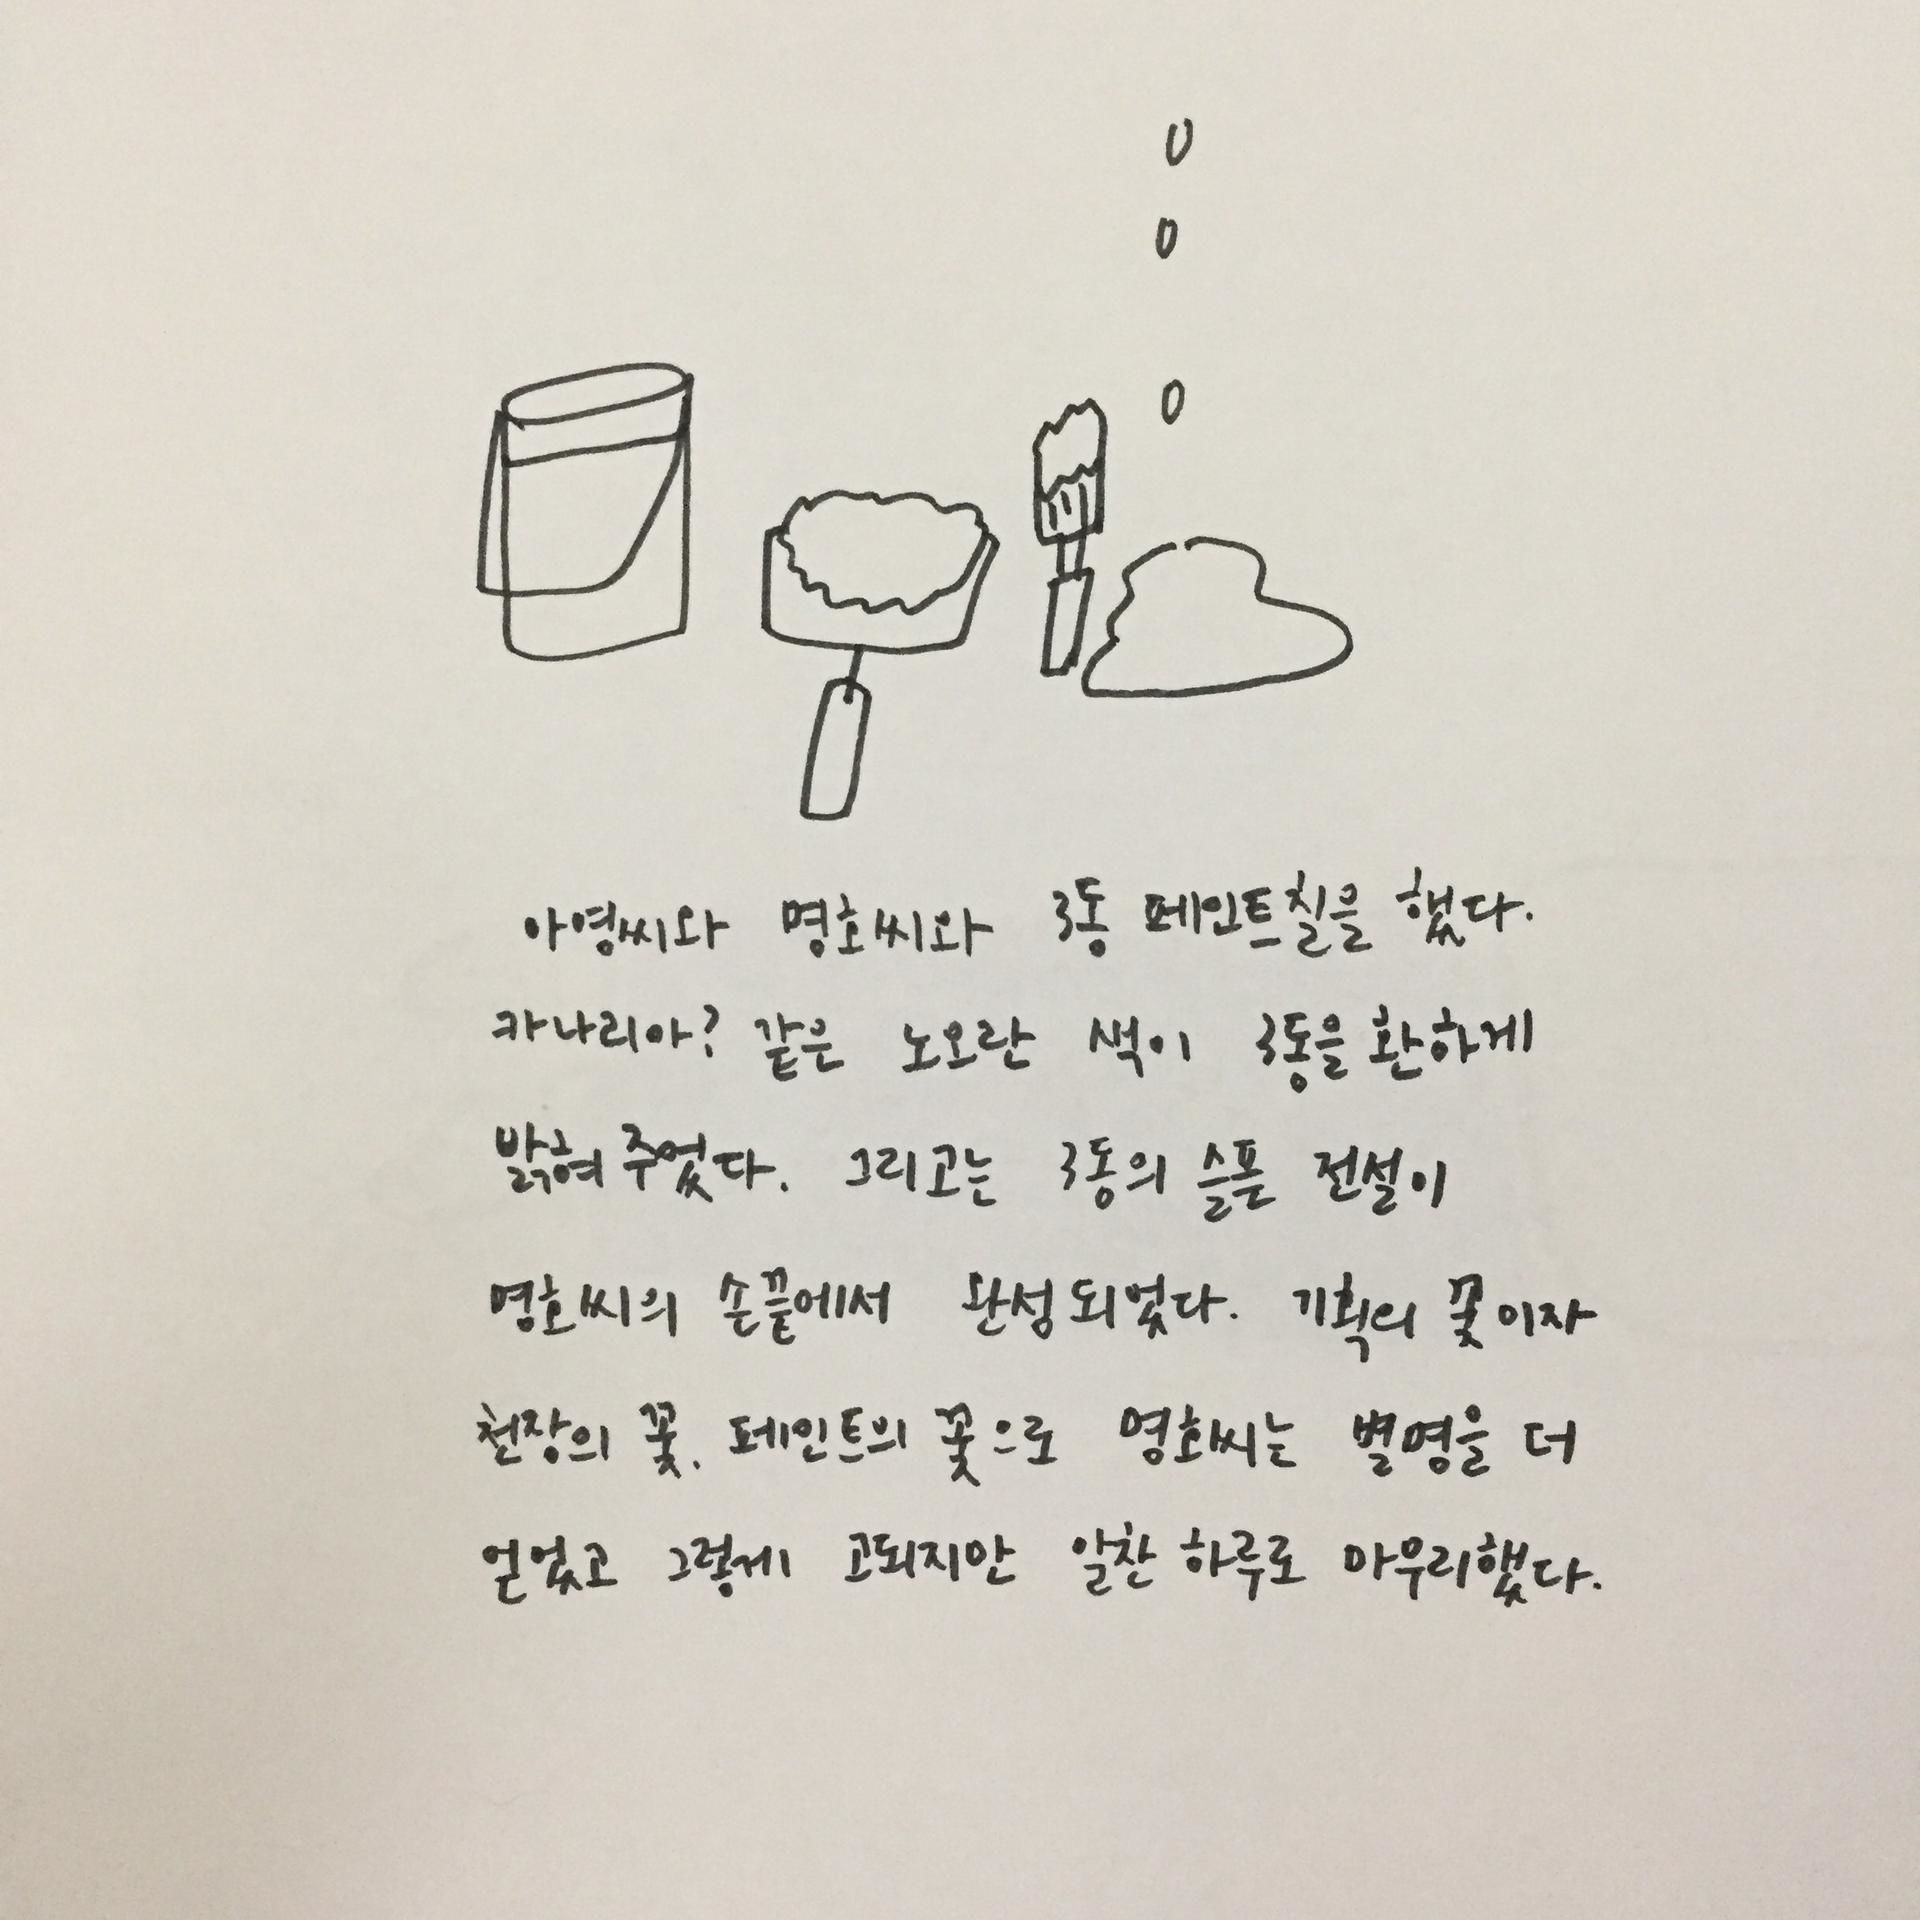 아영씨와 명호씨와 3동 페인트칠을 했다.
카나리아? 같은 노오란 색이 3동을 환하게
밝혀 주었다. 그리고는 3동의 슬픈 전설이
명호씨의 손끝에서 완성되었다. 기획의 꽃이자
천장의 꽃, 페인트의 꽃으로 명호씨는 별명을 더
얻었고 그렇게 고되지만 알찬 하루로 마무리했다.